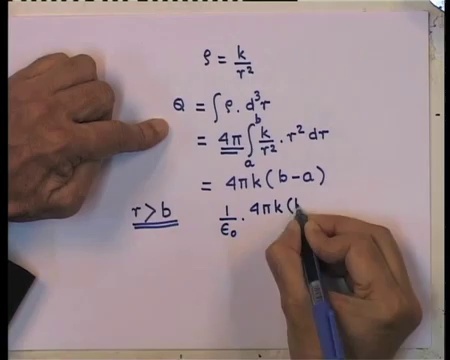 ρ = k/r²
Q = ∫ρ. d³r
= 4π ∫ₐᵇ k/r² · r² dr
= 4πk(b-a)
r>b 1/ε₀ · 4πk(b